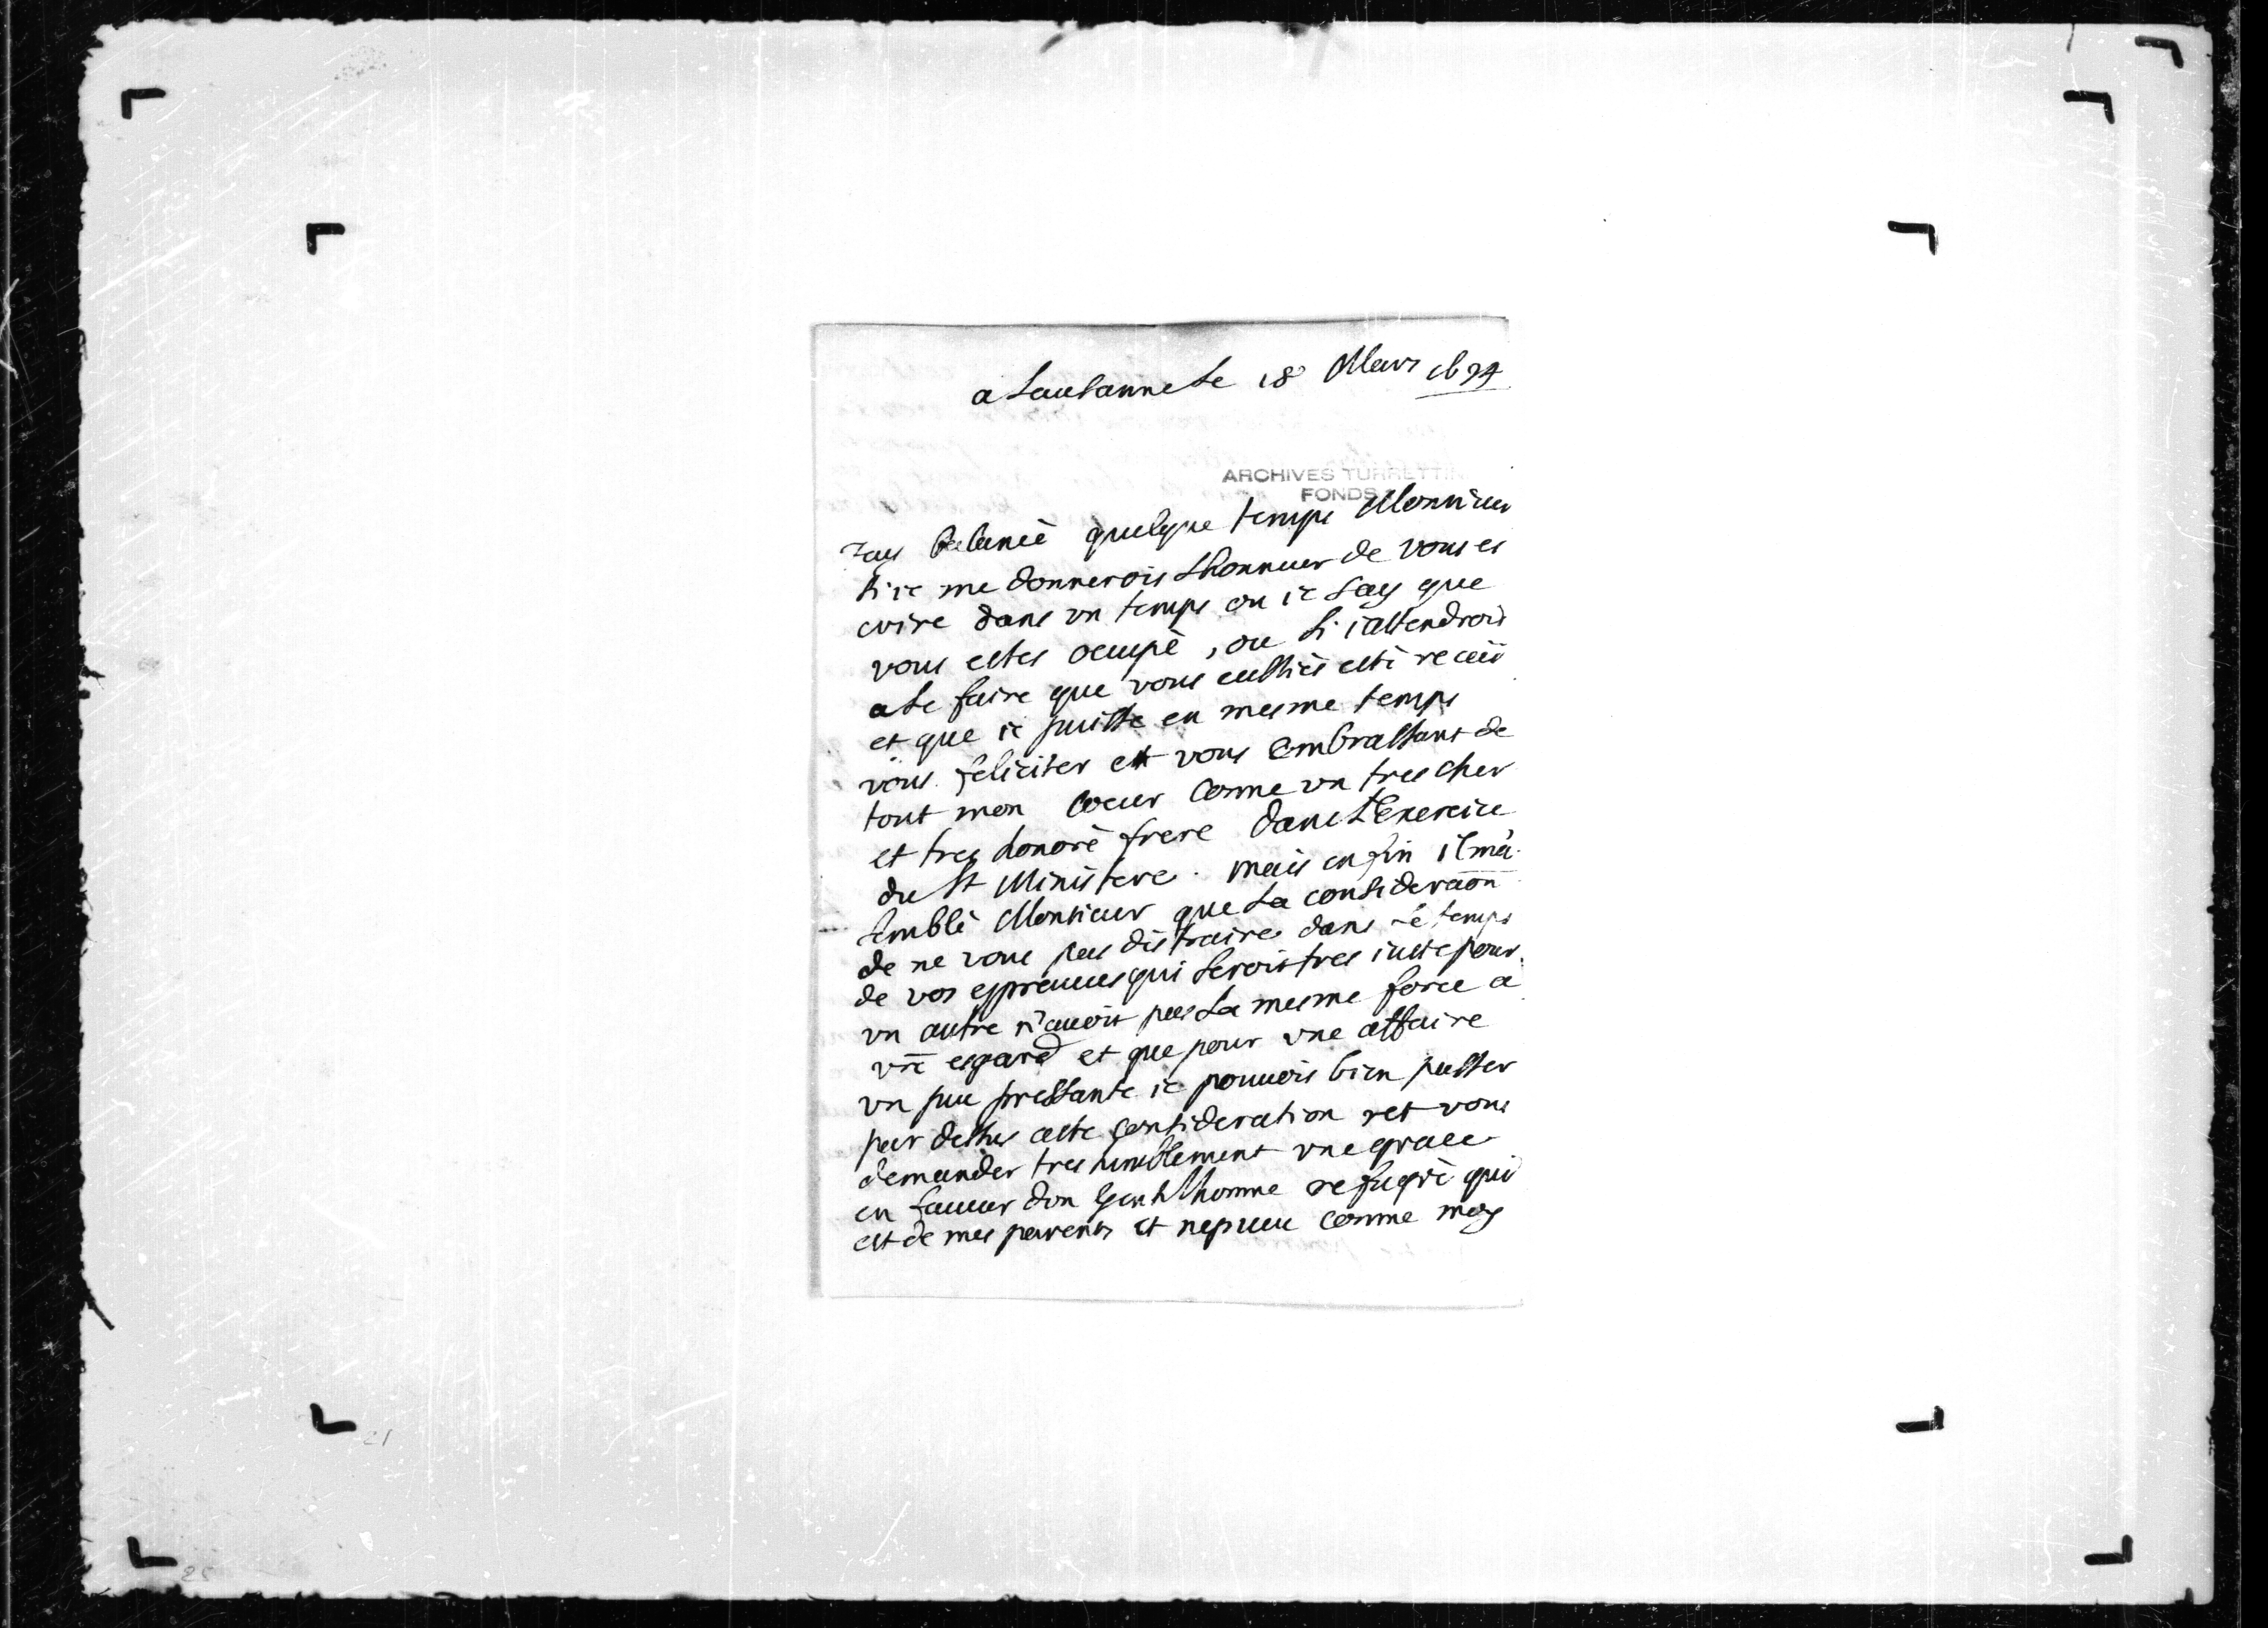 a Lausanne Le 18 Mars 1694
ARCHIVES TURRETTIN
FONDS
Iay balancé quelque temps Monsieur
si ie me donnerois Lhonneur de vous es
crire dans vn temps ou ie say que
vous estes ocupé, ou si iattendrois
a Le faire que vous eussiés esté receü
et que ie puisse en mesme temps
vous feliciter et vous embrassant de
tout mon coeur comme vn tres cher
et tres honoré frere dans LExercice
du St Ministere. mais enfin il m'a
semblé Monsieur que La consideraon
de ne vous pas distraire dans le temps
de vos espreuues qui seroit tres iuste pour
vn autre n'auoit pas La mesme force a
vre esgard et que pour vne affaire
vn peu pressante ie pouuois bien passer
par dessus ceste consideration et vous
demander tres humblement vne grace
en faueur d'vn Gentilhomme refugié qui
est de mes parents et nepueu comme moy
21
25